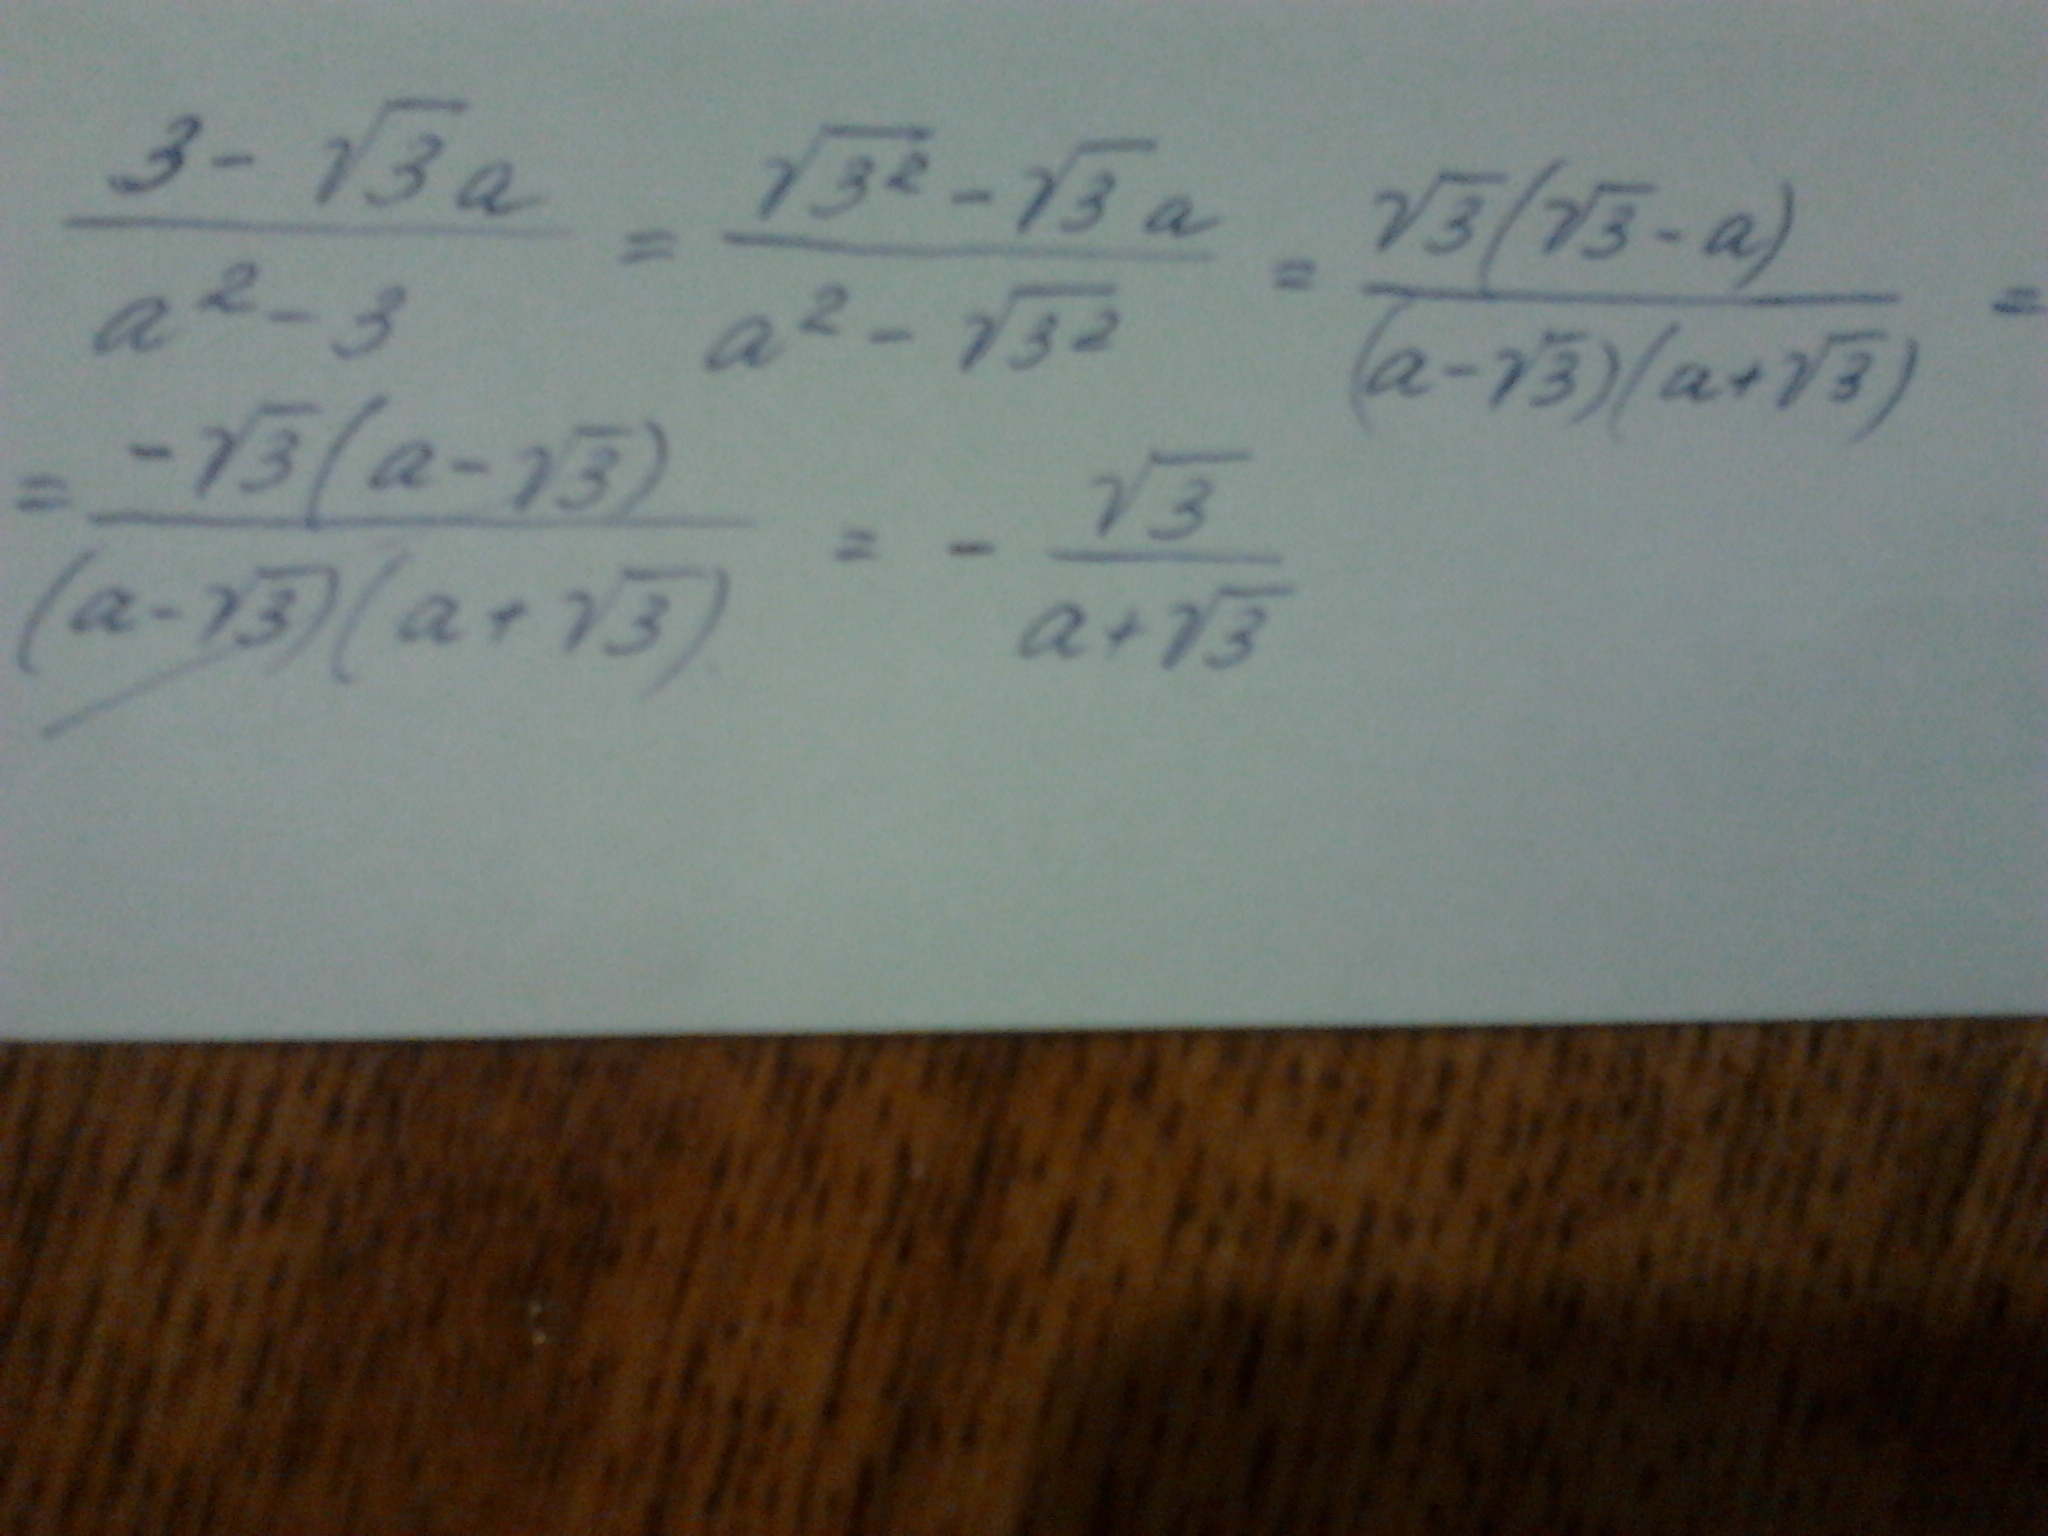 (3 - √3 a)/(a² - 3) = (√3² - √3 a)/(a² - √3²) = (√3(√3 - a))/((a - √3)(a + √3)) =
= (-√3(a - √3))/((a - √3)(a + √3)) = - √3/(a + √3)